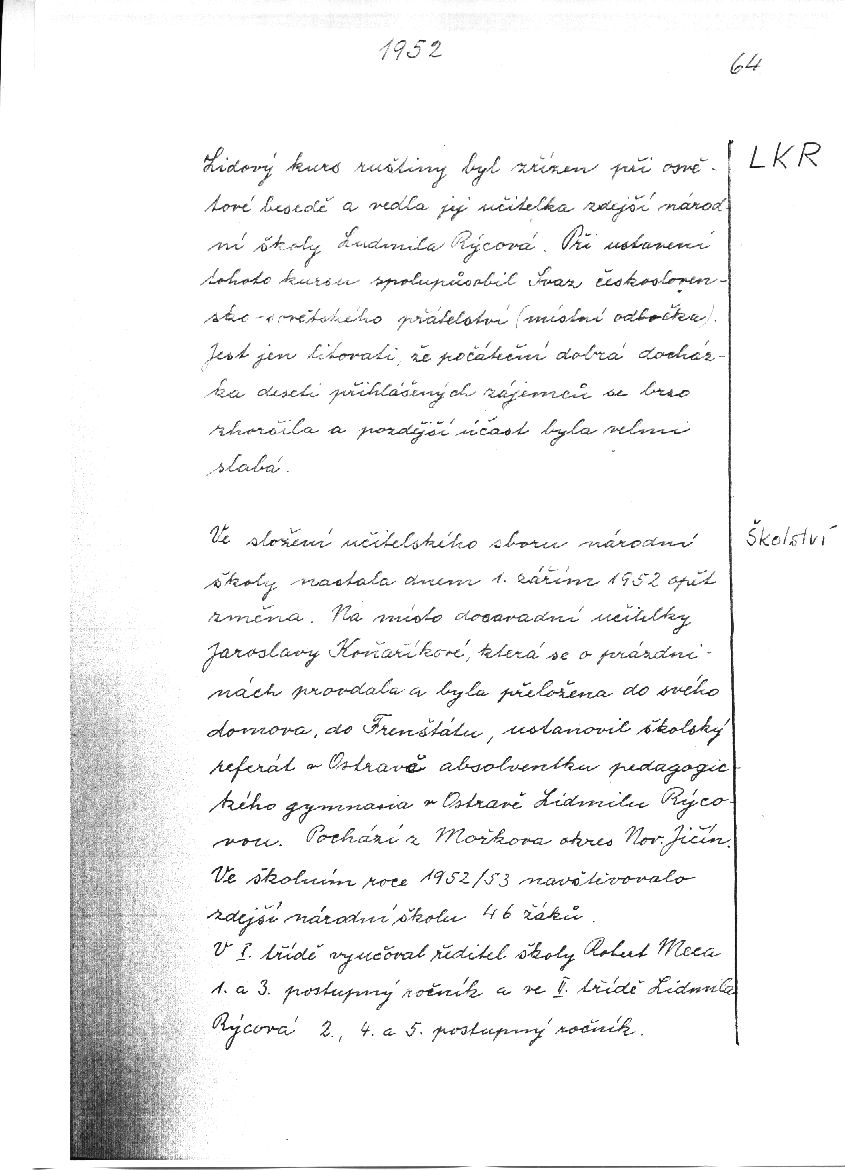 1952
64
LKR
Lidový kurs ruštiny byl zřízen při osvě-
tové besedě a vedla jej učitelka zdejší národ-
ní školy Ludmila Rýcová. Při ustavení
tohoto kursu spolupůsobil Svaz českosloven-
sko-sovětského přátelství (místní odbočka).
Jest jen litovati, že počáteční dobrá docház-
ka deseti přihlášených zájemců se brso
zhoršila a pozdější účast byla velmi
slabá.
Školství
Ve složení učitelského sboru národní
školy nastala dnem 1. zářím 1952 opět
změna. Na místo docavadní učitelky
Jaroslavy Koňaříkové, která se o prázdni-
nách provdala a byla přeložena do svého
domova, do Frenštátu, ustanovil školský
referát v Ostravě absolventku pedagogic-
kého gymnasia v Ostravě Lidmilu Rýco-
vou. Pochází z Mořkova okres Nov. Jičín.
Ve školním roce 1952/53 navštivovalo
zdejší národní školu 46 žáků.
V I. třídě vyučoval ředitel školy Robert Meca
1. a 3. postupný ročník a ve II. třídě Lidmila
Rýcová 2., 4. a 5. postupný ročník.